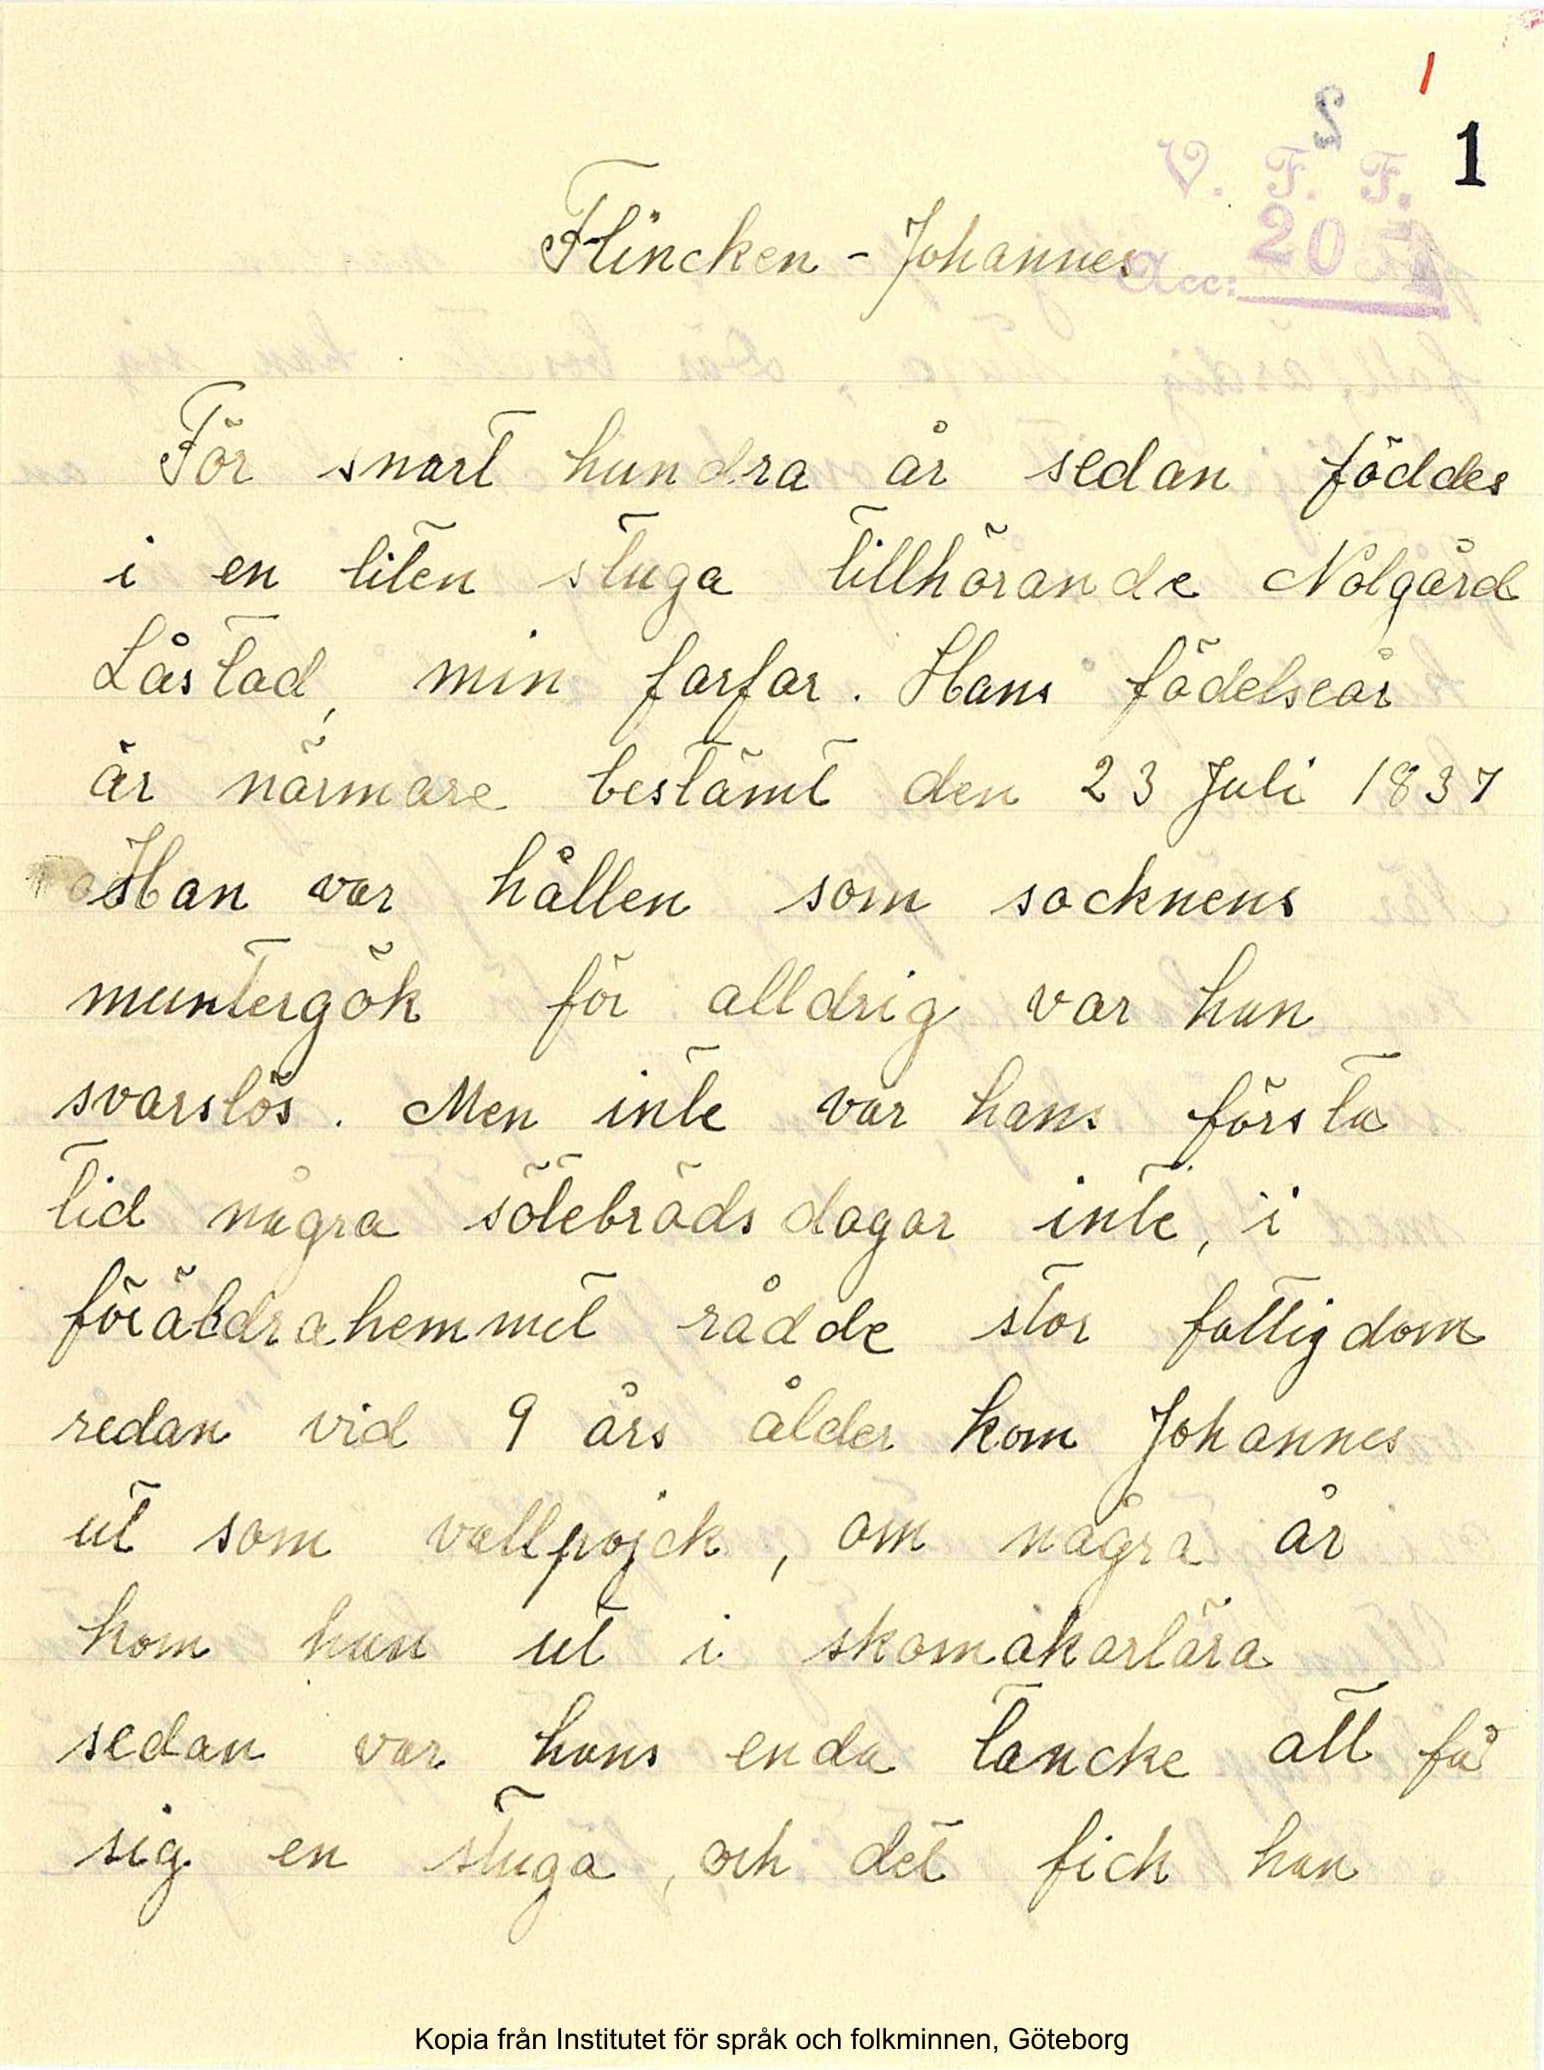 1
V. F. F.
Acc: 205
1
Flincken - Johannes
För snart hundra år sedan föddes
i en liten stuga tillhörande Nolgård
Låstad, min farfar. Hans födelseår
är närmare bestämt den 23 Juli 1837
Han var hållen som socknens
muntergök för alldrig var han
svarslös. Men inte var hans första
tid några sötebrödsdagar inte, i
föräldrahemmet rådde stor fattigdom
redan vid 9 års ålder kom Johannes
ut som vallpojck, om några år
kom han ut i skomakarlära
sedan var hans enda tancke att få
sig en stuga, och det fick han
Kopia från Institutet för språk och folkminnen, Göteborg